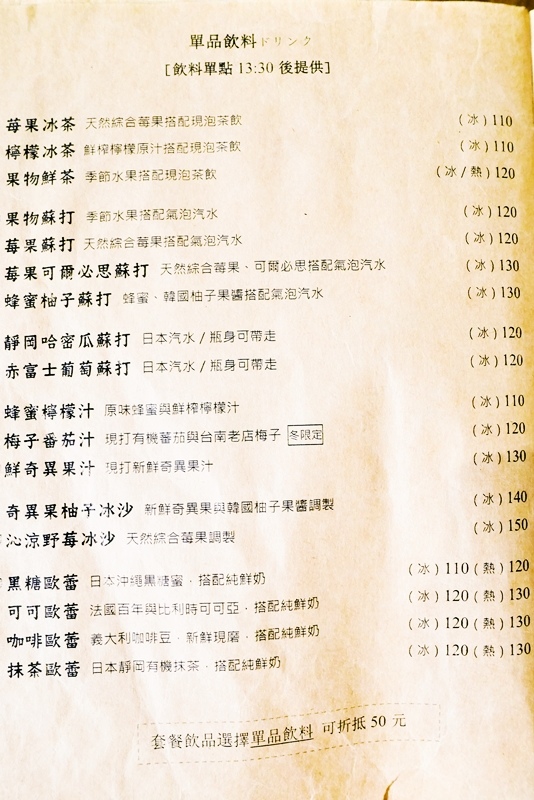 單品飲料ドリンク
[飲料單點 13:30 後提供]
莓果冰茶 天然綜合莓果搭配現泡茶飲 (冰) 110
檸檬冰茶 鮮榨檸檬原汁搭配現泡茶飲 (冰) 110
果物鮮茶 季節水果搭配現泡茶飲 (冰/熱) 120
果物蘇打 季節水果搭配氣泡汽水 (冰) 120
莓果蘇打 天然綜合莓果搭配氣泡汽水 (冰) 120
莓果可爾必思蘇打 天然綜合莓果、可爾必思搭配氣泡汽水 (冰) 130
蜂蜜柚子蘇打 蜂蜜、韓國柚子果醬搭配氣泡汽水 (冰) 130
靜岡哈密瓜蘇打 日本汽水/瓶身可帶走 (冰) 120
赤富士葡萄蘇打 日本汽水/瓶身可帶走 (冰) 120
蜂蜜檸檬汁 原味蜂蜜與鮮榨檸檬汁 (冰) 110
梅子番茄汁 現打有機蕃茄與台南老店梅子 冬限定 (冰) 120
鮮奇異果汁 現打新鮮奇異果汁 (冰) 130
奇異果柚子冰沙 新鮮奇異果與韓國柚子果醬調製 (冰) 140
沁涼野莓冰沙 天然綜合莓果調製 (冰) 150
黑糖歐蕾 日本沖繩黑糖蜜．搭配純鮮奶 (冰) 110 (熱) 120
可可歐蕾 法國百年與比利時可可亞．搭配純鮮奶 (冰) 120 (熱) 130
咖啡歐蕾 義大利咖啡豆．新鮮現磨．搭配純鮮奶 (冰) 120 (熱) 130
抹茶歐蕾 日本靜岡有機抹茶．搭配純鮮奶 (冰) 120 (熱) 130
套餐飲品選擇單品飲料 可折抵 50 元